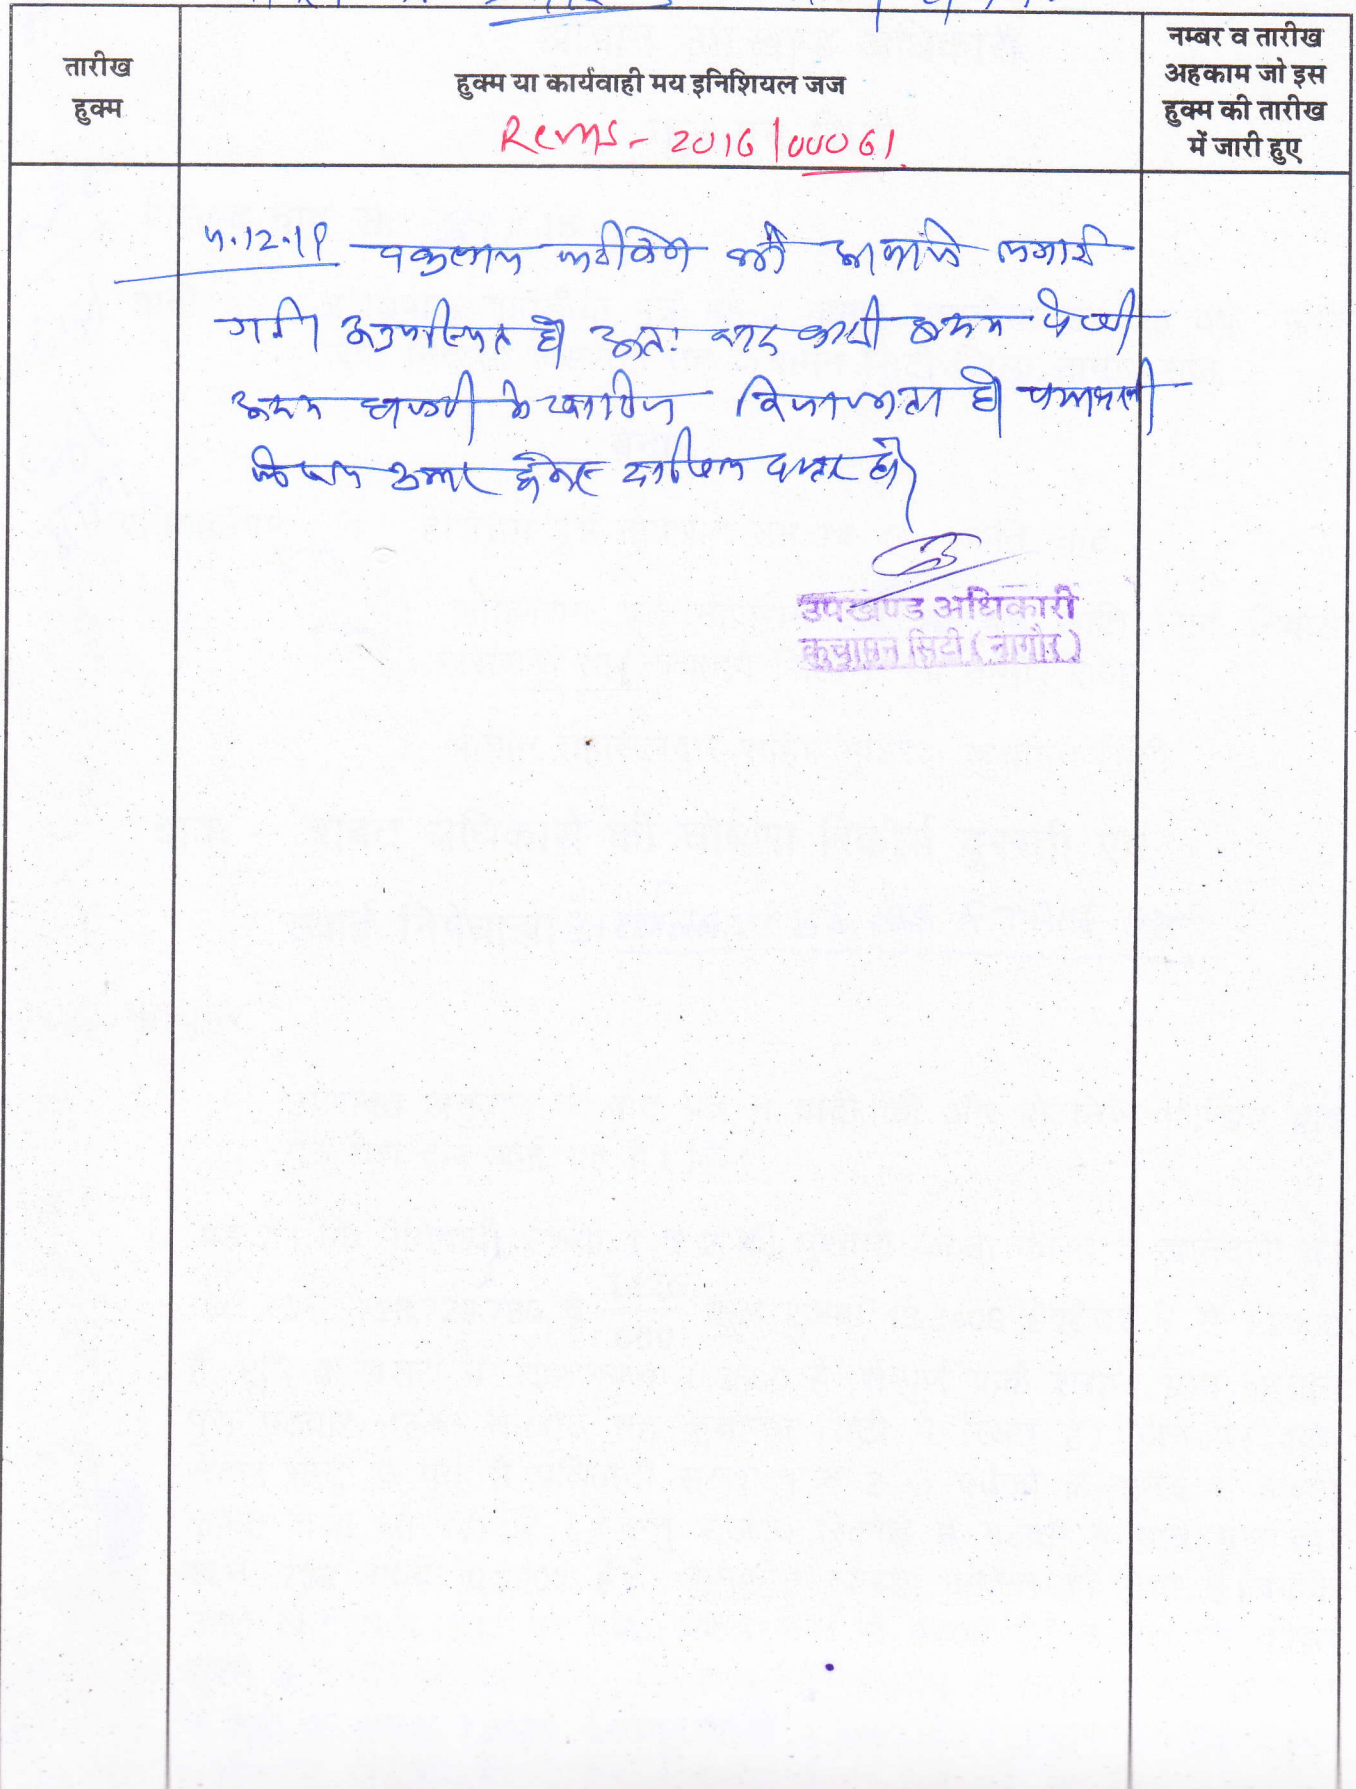 तारीख
हुक्म
हुक्म या कार्यवाही मय इनिशियल जज
नम्बर व तारीख
अहकाम जो इस
हुक्म की तारीख
में जारी हुए
Rcms - 2016/00061
वकुलाय फरीकेन को आवाजे लगाई
गयी। अनुपस्थित है। अतः वाद वादी अदम पेरवी
अदम हाजरी मे खारिज किया जाता है। पत्रावली
फैसल शुमार होकर दाखिल दफ्तर हो।
उपखण्ड अधिकारी
कुचामन सिटी (नागौर)